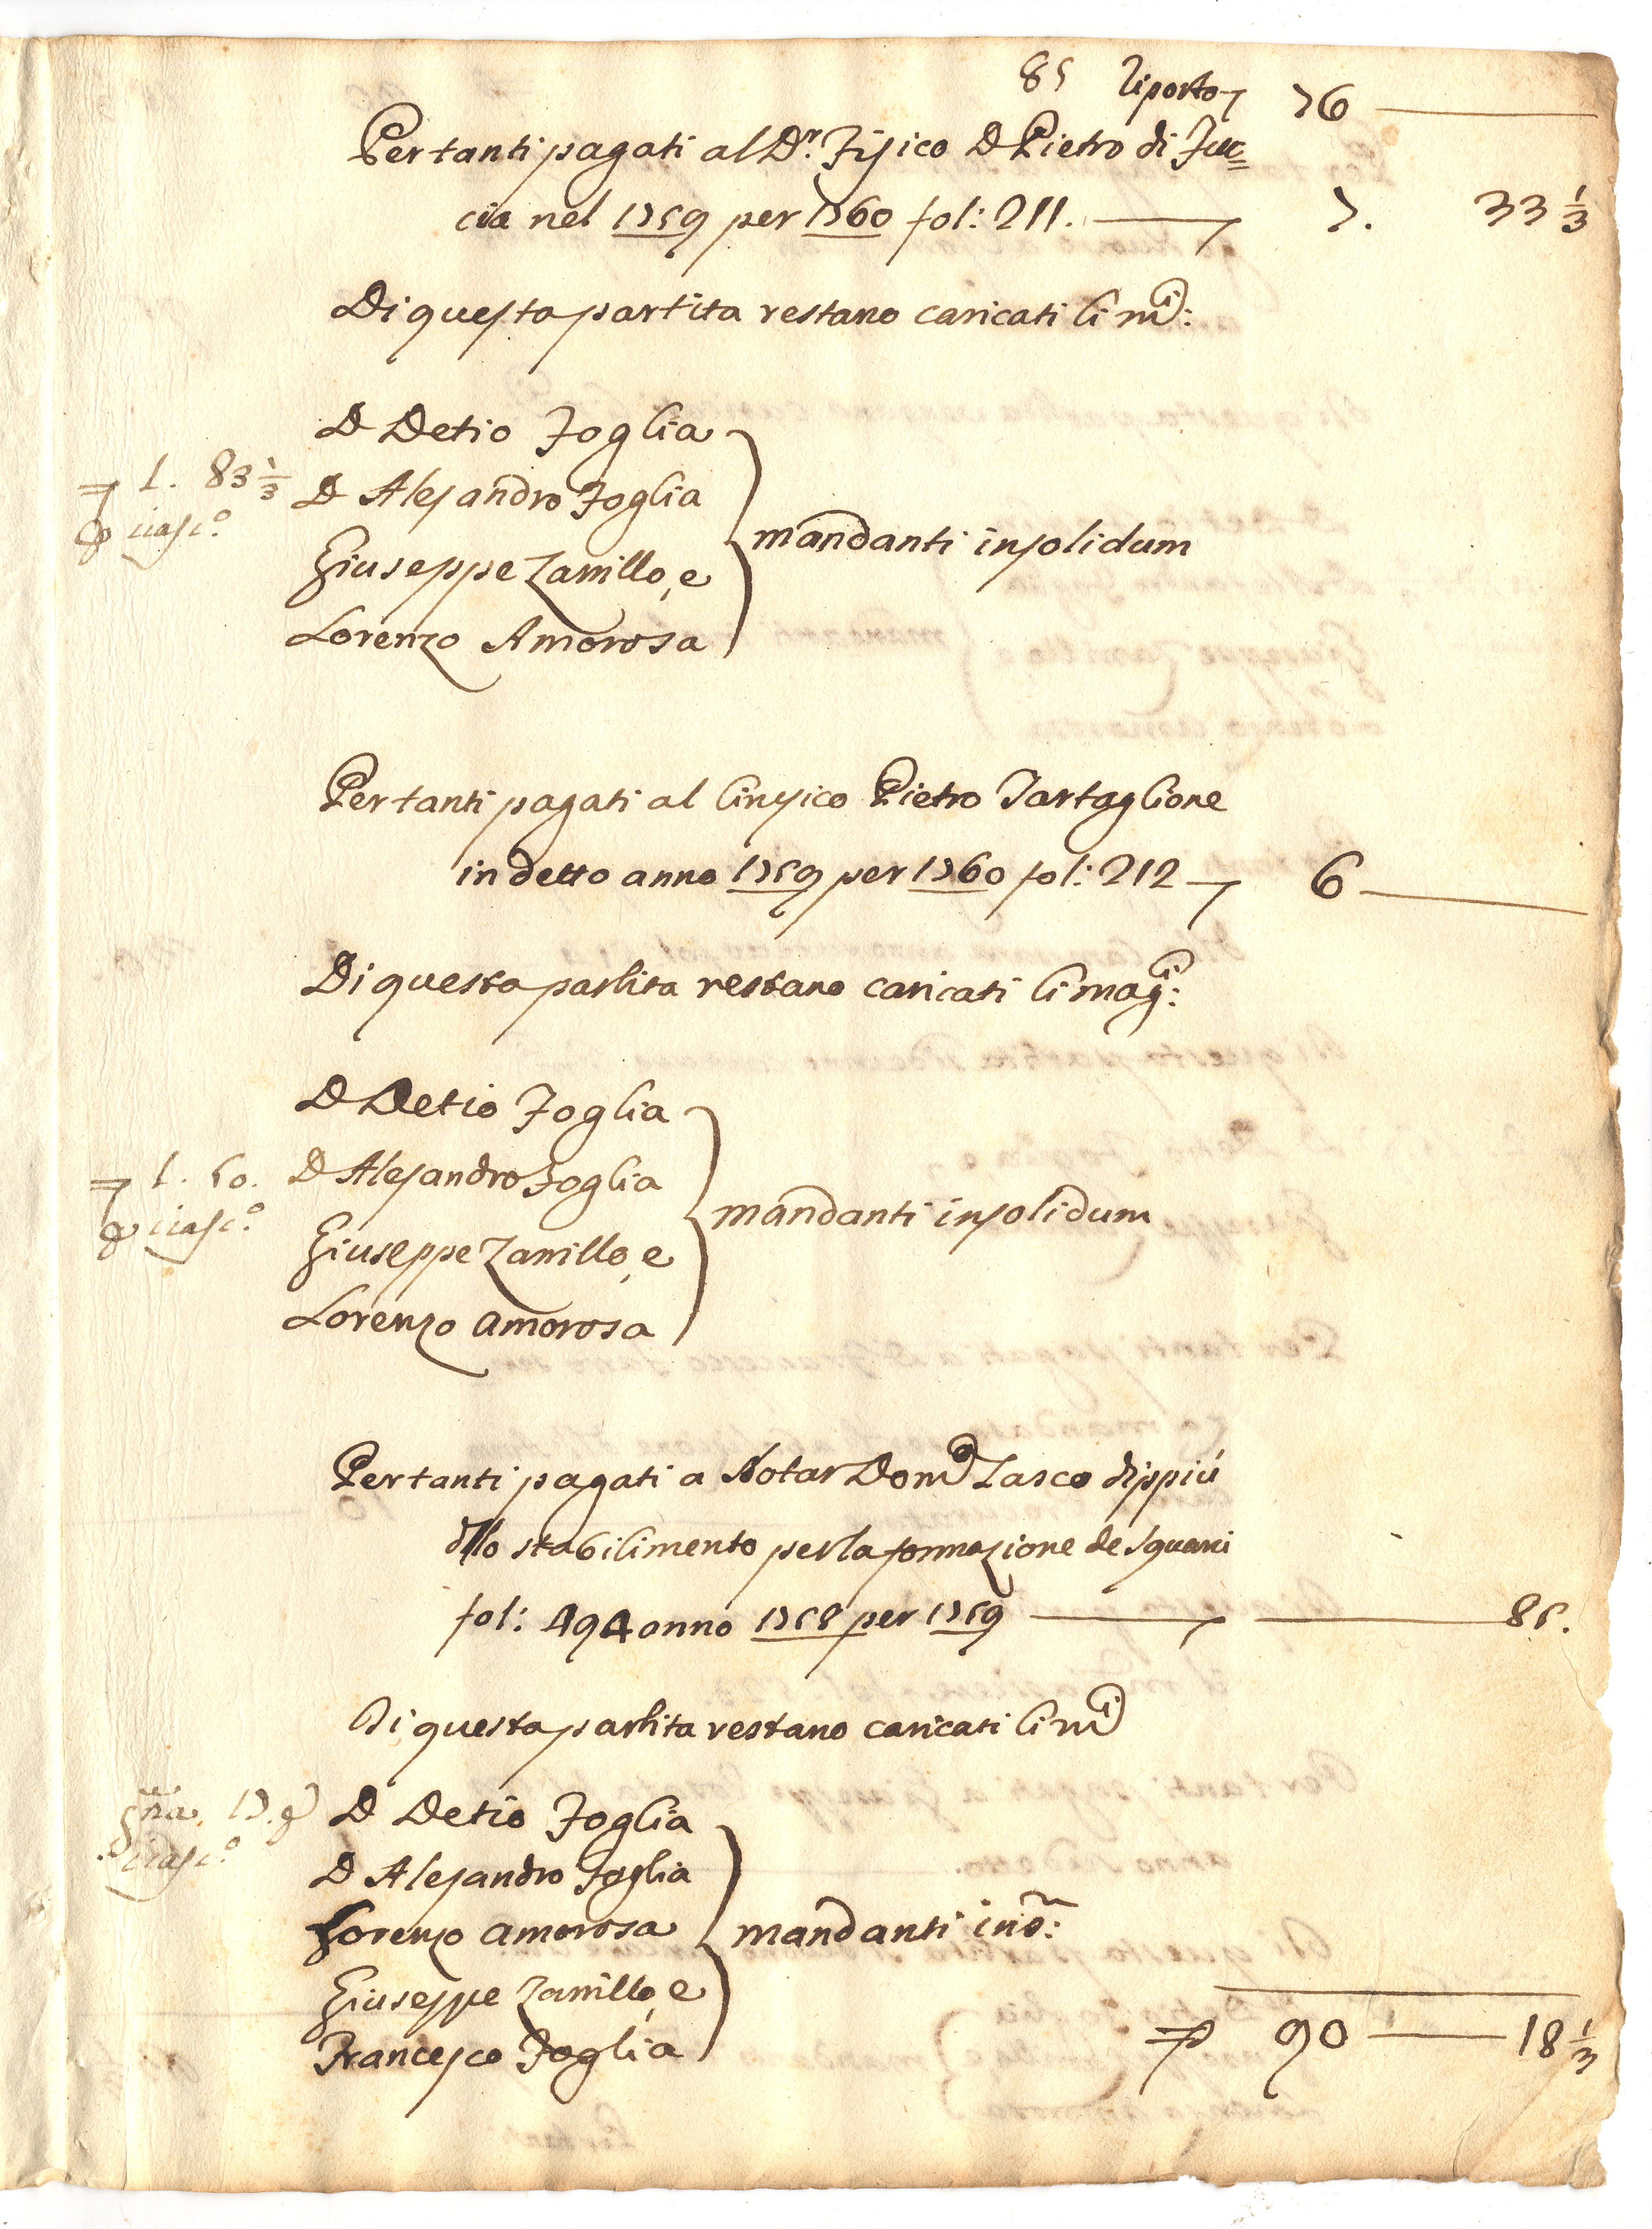 85 Riporto 76
Per tanti pagati al Dr. Fisico D Pietro di Fuc=
cia nel 1759 per 1760 fol: 211. 7. 33 1/3
Di questa partita restano caricati li mi:
D Detio Foglia
1. 83 1/3 D Alesandro Foglia
ciasco. mandanti insolidum
Giuseppe Zanillo, e
Lorenzo Amorosa
Per tanti pagati al Cirusico Pietro Tartaglione
in detto anno 1759 per 1760 fol: 212 6
Di questa partita restano caricati li magi:
D Detio Foglia
1. 50. D Alesandro Foglia
ciasco. mandanti insolidum
Giuseppe Zanillo, e
Lorenzo Amorosa
Per tanti pagati a Notar Domo Zasco dippiù
dllo stabilimento per la formazione de squarci
fol: 494 anno 1758 per 1759 85.
Di questa partita restano caricati li mi
gna. 17. D Detio Foglia
ciasco. D Alesandro Foglia
Lorenzo Amorosa mandanti ins:
Giuseppe Zanillo, e
Francesco Foglia
90 18 1/3